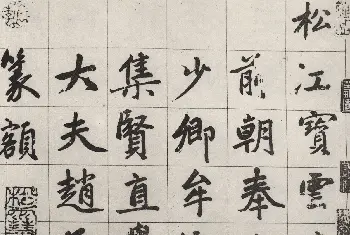 松江寶雲
前朝奉
少卿牟
集賢直
大夫趙
篆額